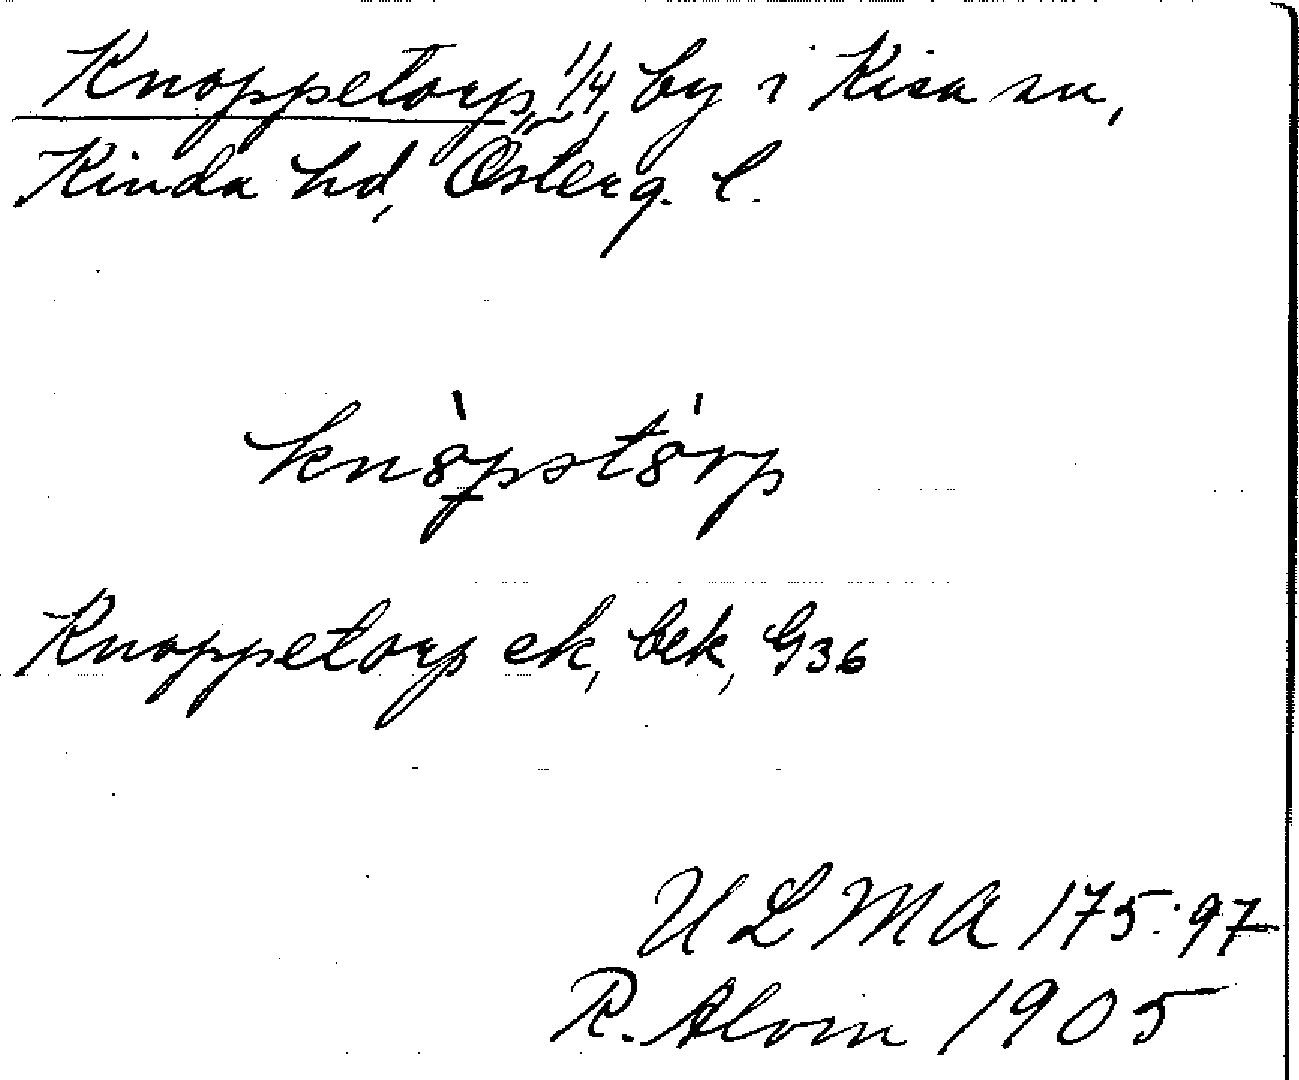 Knoppetorp, 1/4, by i Kisa sn,
Kinda hd, Österg. l.
Knoppetorp ek, bek, G36
ULMA 175:97
R. Alvin 1905